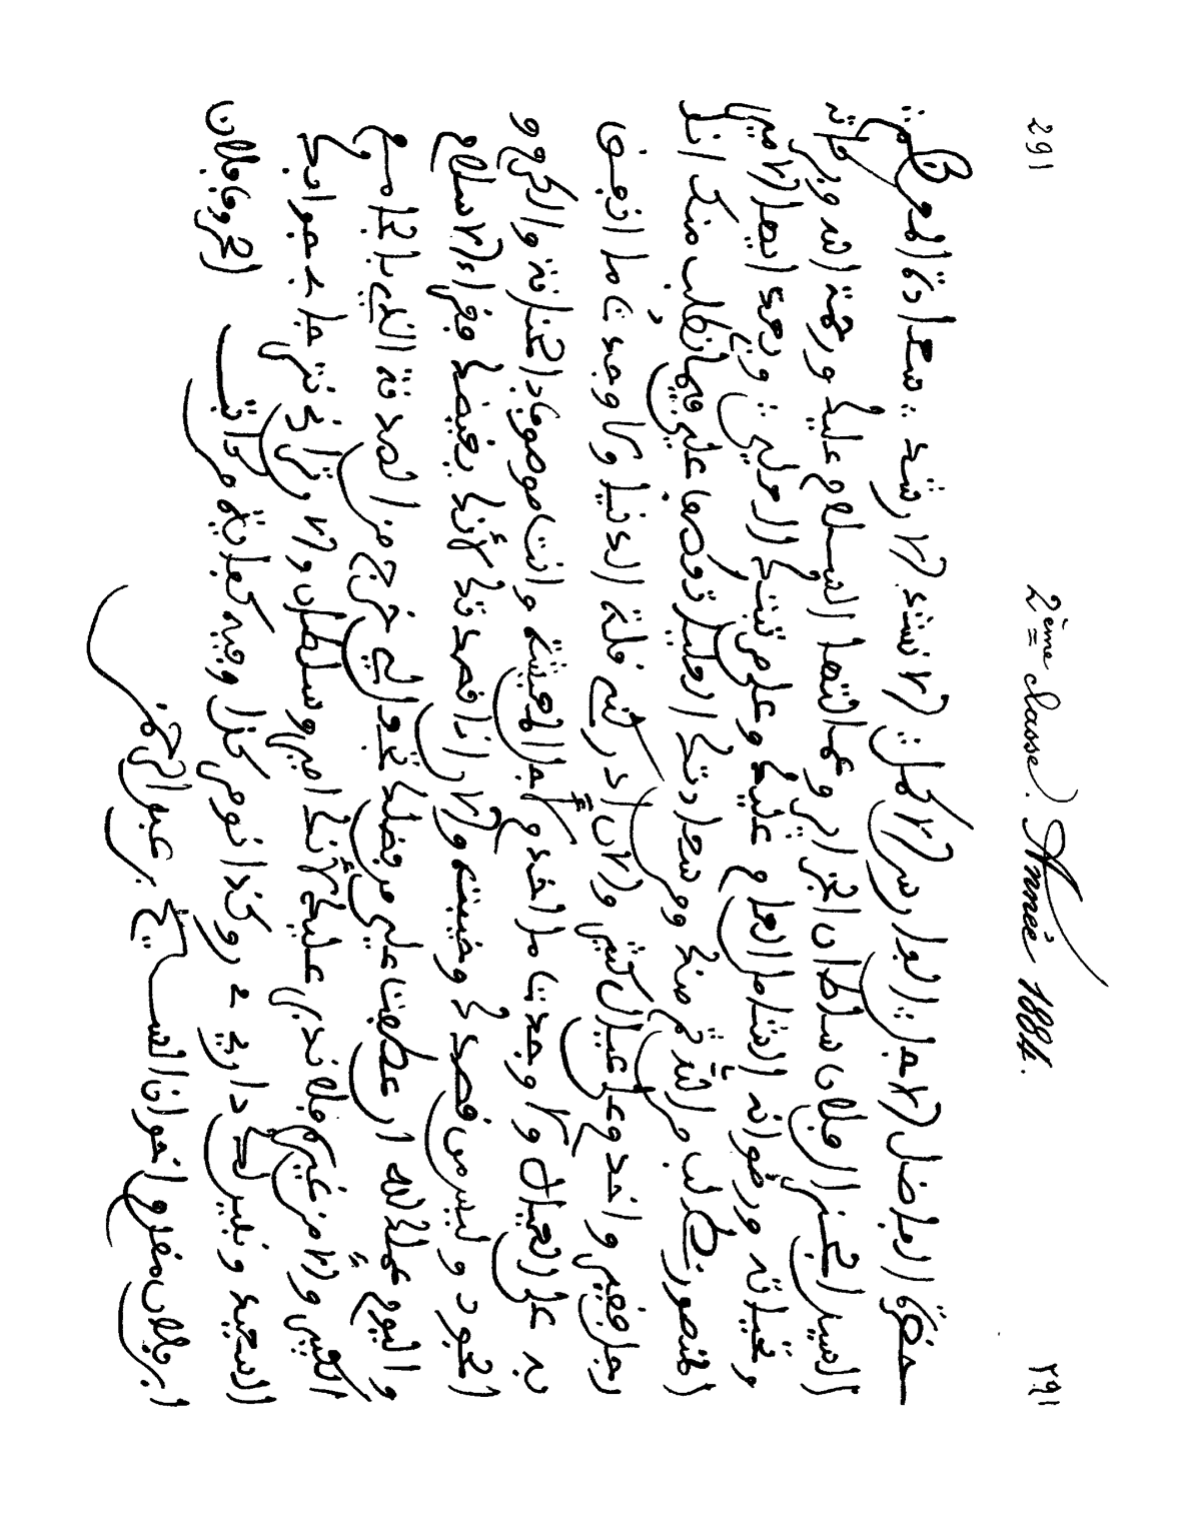 291 2ème classe. Année 1884. ٢٩١
حضرة الفاضل الاجل البار الاكمل الارشد سعادة المعظم
السيد الجنرال فلان سلطان الجزاير وعمالتها السلام عليك ورحمة الله وبركاته
وتحياته ورضوانه الشامل العام عليك وعلى من العلي وبعد ايها الامير
المنصور نطلب من الله ثم منك ومن سعادتك علي فيما نطلب منك انني
رجل فقير واحد عيال كثير والان ادركني قلة الدنيا ولا وجدت ما انفق
به على العيال ولا وجدت ما اخدم المعيشة وانت موصوف بالحنانة والكرم و
الجود وليس من قصدك وخيبته والان انا قصدتك لانك فقراء الاسلام
واليوم عملا لله ان عطفت علي من فضلك خرج من الصدقة الذي بالجامع
الكبير ولا من غيرهم فلا عليك لانك امير وسلطان ولا نزال ننتظر بجوابك
السعيد ونبين لك داري في رو كذا نومر كذا فلان
ابن فلان مقدم اخوان الشيخ بن عبد الرحمن